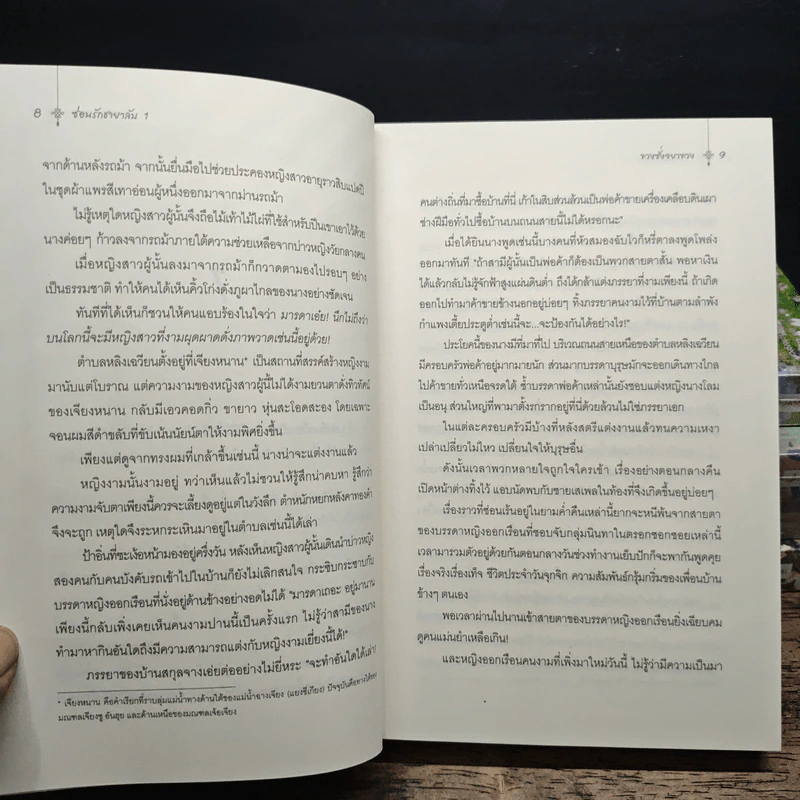 8 ซ่อนรักชายาลับ 1
จากด้านหลังรถม้า จากนั้นยื่นมือไปช่วยประคองหญิงสาวอายุราวสิบแปดปี
ในชุดผ้าแพรสีเทาอ่อนผู้หนึ่งออกมาจากม่านรถม้า
ไม่รู้เหตุใดหญิงสาวผู้นั้นจึงถือไม้เท้าไม้ไผ่ที่ใช้สำหรับปีนเขาเอาไว้ด้วย
นางค่อยๆ ก้าวลงจากรถม้าภายใต้ความช่วยเหลือจากบ่าวหญิงวัยกลางคน
เมื่อหญิงสาวผู้นั้นลงมาจากรถม้าก็กวาดตามองไปรอบๆ อย่าง
เป็นธรรมชาติ ทำให้คนได้เห็นคิ้วโก่งดั่งภูผาไกลของนางอย่างชัดเจน
ทันทีที่ได้เห็นก็ชวนให้คนแอบร้องในใจว่า มารดาเอ๋ย! นึกไม่ถึงว่า
บนโลกนี้จะมีหญิงสาวที่งามผุดผาดดั่งภาพวาดเช่นนี้อยู่ด้วย!
ตำบลหลิงเฉวียนตั้งอยู่ที่เจียงหนาน* เป็นสถานที่สรรค์สร้างหญิงงาม
มานับแต่โบราณ แต่ความงามของหญิงสาวผู้นี้ไม่ได้งามยวนตาดั่งทิวทัศน์
ของเจียงหนาน กลับมีเอวคอดกิ่ว ขายาว หุ่นสะโอดสะอง โดยเฉพาะ
จอนผมสีดำขลับที่ขับเน้นนัยน์ตาให้งามพิศยิ่งขึ้น
เพียงแต่ดูจากทรงผมที่เกล้าขึ้นเช่นนี้ นางน่าจะแต่งงานแล้ว
หญิงงามนั้นงามอยู่ ทว่าเห็นแล้วไม่ชวนให้รู้สึกน่าคบหา รู้สึกว่า
ความงามจับตาเพียงนี้ควรจะเลี้ยงดูอยู่แต่ในวังลึก ตำหนักหยกหลังคาทองคำ
จึงจะถูก เหตุใดจึงระหกระเหินมาอยู่ในตำบลเช่นนี้ได้เล่า
ป้าอิ่นที่ชะเง้อหน้ามองอยู่ครึ่งวัน หลังเห็นหญิงสาวผู้นั้นเดินนำบ่าวหญิง
สองคนกับคนบังคับรถเข้าไปในบ้านก็ยังไม่เลิกสนใจ กระซิบกระซาบกับ
บรรดาหญิงออกเรือนที่นั่งอยู่ด้านข้างอย่างอดไม่ได้ "มารดาเถอะ อยู่มานาน
เพียงนี้กลับเพิ่งเคยเห็นคนงามปานนี้เป็นครั้งแรก ไม่รู้ว่าสามีของนาง
ทำมาหากินอันใดถึงมีความสามารถแต่งกับหญิงงามเยี่ยงนี้ได้!"
ภรรยาของบ้านสกุลจางเอ่ยต่ออย่างไม่ยี่หระ "จะทำอันใดได้เล่า
* เจียงหนาน คือคำเรียกที่ราบลุ่มแม่น้ำทางด้านใต้ของแม่น้ำฉางเจียง (แยงซีเกียง) ปัจจุบันคือทางใต้ของ
มณฑลเจียงซู อันฮุย และด้านเหนือของมณฑลเจ้อเจียง
9
คนต่างถิ่นที่มาซื้อบ้านที่นี่ เก้าในสิบส่วนล้วนเป็นพ่อค้าขายเครื่องเคลือบดินเผา
ช่างฝีมือทั่วไปซื้อบ้านบนถนนสายนี้ไม่ได้หรอกนะ"
เมื่อได้ยินนางพูดเช่นนี้บางคนที่หัวสมองฉับไวก็หรี่ตาลงพูดโพล่ง
ออกมาทันที "ถ้าสามีผู้นั้นเป็นพ่อค้าก็ต้องเป็นพวกสายตาสั้น พอหาเงิน
ได้แล้วกลับไม่รู้จักฟ้าสูงแผ่นดินต่ำ ถึงได้กล้าแต่งภรรยาที่งามเพียงนี้ ถ้าเกิด
ออกไปทำมาค้าขายข้างนอกอยู่บ่อยๆ ทิ้งภรรยาคนงามไว้ที่บ้านตามลำพัง
กำแพงเตี้ยประตูต่ำเช่นนี้จะ...จะป้องกันได้อย่างไร!"
ประโยคนี้ของนางมีที่มาที่ไป บริเวณถนนสายเหนือของตำบลหลิงเฉวียน
มีครอบครัวพ่อค้าอยู่มากมายนัก ส่วนมากบรรดาบุรุษมักจะออกเดินทางไกล
ไปค้าขายทั่วเหนือจรดใต้ ซ้ำบรรดาพ่อค้าเหล่านั้นยังชอบแต่งหญิงนางโลม
เป็นอนุ ส่วนใหญ่ที่พามาตั้งรกรากอยู่ที่นี่ด้วยล้วนไม่ใช่ภรรยาเอก
ในแต่ละครอบครัวมีบ้างที่หลังสตรีแต่งงานแล้วทนความเหงา
เปล่าเปลี่ยวไม่ไหว เปลี่ยนใจให้บุรุษอื่น
ดังนั้นเวลาพวกหลายใจถูกใจใครเข้า เรื่องอย่างตอนกลางคืน
เปิดหน้าต่างทิ้งไว้ แอบนัดพบกับชายเสเพลในท้องที่จึงเกิดขึ้นอยู่บ่อยๆ
เรื่องราวที่ซ่อนเร้นอยู่ในยามค่ำคืนเหล่านี้ยากจะหนีพ้นจากสายตา
ของบรรดาหญิงออกเรือนที่ชอบจับกลุ่มนินทาในตรอกซอกซอยเหล่านี้
เวลามารวมตัวอยู่ด้วยกันตอนกลางวันช่วงทำงานเย็บปักก็จะพากันพูดคุย
เรื่องจริงเรื่องเท็จ ชีวิตประจำวันจุกจิก ความสัมพันธ์กรุ้มกริ่มของเพื่อนบ้าน
ข้างๆ ตนเอง
พอเวลาผ่านไปนานเข้าสายตาของบรรดาหญิงออกเรือนยิ่งเฉียบคม
ดูคนแม่นยำเหลือเกิน!
และหญิงออกเรือนคนงามที่เพิ่งมาใหม่วันนี้ ไม่รู้ว่ามีความเป็นมา